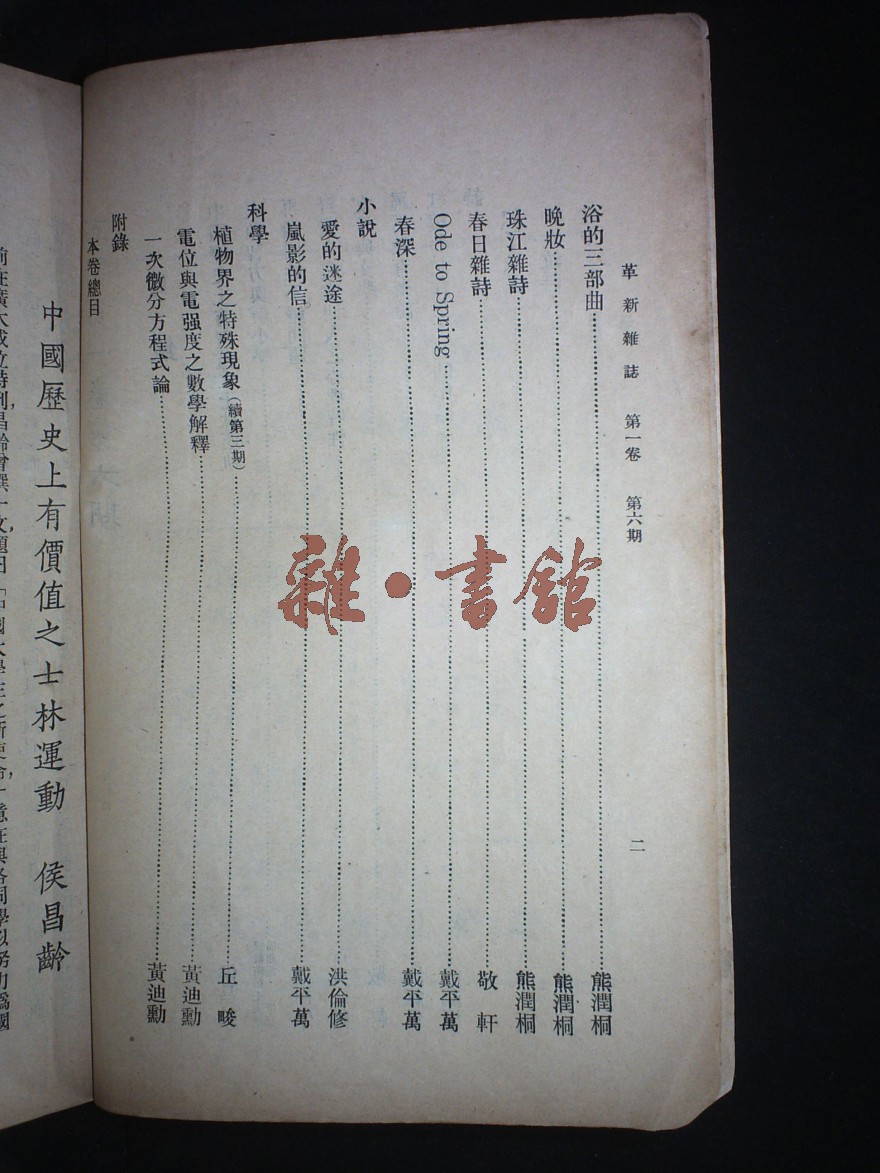 革新雜誌　第一卷　第六期　二
浴的三部曲……熊潤桐
晚妝……熊潤桐
珠江雜詩……熊潤桐
春日雜詩……敬軒
Ode to Spring……戴平萬
春深……戴平萬
小說
愛的迷途……洪倫修
嵐影的信……戴平萬
科學
植物界之特殊現象（續第三期）……丘畯
電位與電强度之數學解釋……黃迪勳
一次微分方程式論……黃迪勳
附錄
本卷總目
中國歷史上有價值之士林運動　侯昌齡
雜·書館